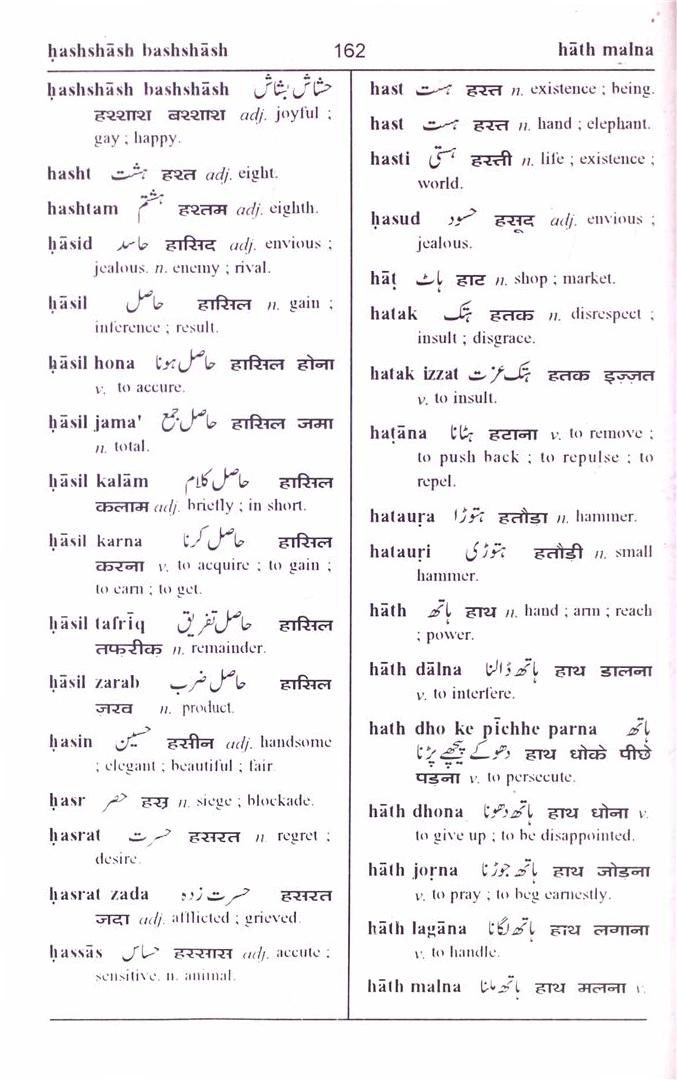 ḥashshāsh bashshāsh 162 hāth malna
ḥashshāsh bashshāsh حشاش بشاش
हश्शाश बश्शाश adj. joyful ;
gay ; happy.
hasht ہشت हश्त adj. eight.
hashtam ہشتم हश्तम adj. eighth.
ḥāsid حاسد हासिद adj. envious ;
jealous. n. enemy ; rival.
ḥāsil حاصل हासिल n. gain ;
inference ; result.
ḥāsil hona حاصل ہونا हासिल होना
v. to accure.
ḥāsil jama' حاصل جمع हासिल जमा
n. total.
ḥāsil kalām حاصل کلام हासिल
कलाम adj. briefly ; in short.
ḥāsil karna حاصل کرنا हासिल
करना v. to acquire ; to gain ;
to earn ; to get.
ḥāsil tafrīq حاصل تفریق हासिल
तफ़रीक़ n. remainder.
ḥāsil zarab حاصل ضرب हासिल
ज़रव n. product.
ḥasin حسین हसीन adj. handsome
; elegant ; beautiful ; fair.
ḥasr حصر हस्र n. siege ; blockade.
ḥasrat حسرت हसरत n. regret ;
desire.
ḥasrat zada حسرت زدہ हसरत
जदा adj. afflicted ; grieved.
ḥassās حساس हस्सास adj. accute ;
sensitive. n. animal.
hast ہست हस्त n. existence ; being.
hast ہست हस्त n. hand ; elephant.
hasti ہستی हस्ती n. life ; existence ;
world.
ḥasud حسود हसूद adj. envious ;
jealous.
hāṭ ہاٹ हाट n. shop ; market.
hatak ہتک हतक n. disrespect ;
insult ; disgrace.
hatak izzat ہتک عزت हतक इज़्ज़त
v. to insult.
haṭāna ہٹانا हटाना v. to remove ;
to push back ; to repulse ; to
repel.
hatauṛa ہتوڑا हतौडा n. hammer.
hatauṛi ہتوڑی हतौड़ी n. small
hammer.
hāth ہاتھ हाथ n. hand ; arm ; reach
; power.
hāth dālna ہاتھ ڈالنا हाथ डालना
v. to interfere.
hath dho ke pīchhe parna ہاتھ
دھو کے پیچھے پڑنا हाथ धोके पीछे
पड़ना v. to persecute.
hāth dhona ہاتھ دھونا हाथ धोना v.
to give up ; to be disappointed.
hāth joṛna ہاتھ جوڑنا हाथ जोड़ना
v. to pray ; to beg earnestly.
hāth lagāna ہاتھ لگانا हाथ लगाना
v. to handle.
hāth malna ہاتھ ملنا हाथ मलना v.